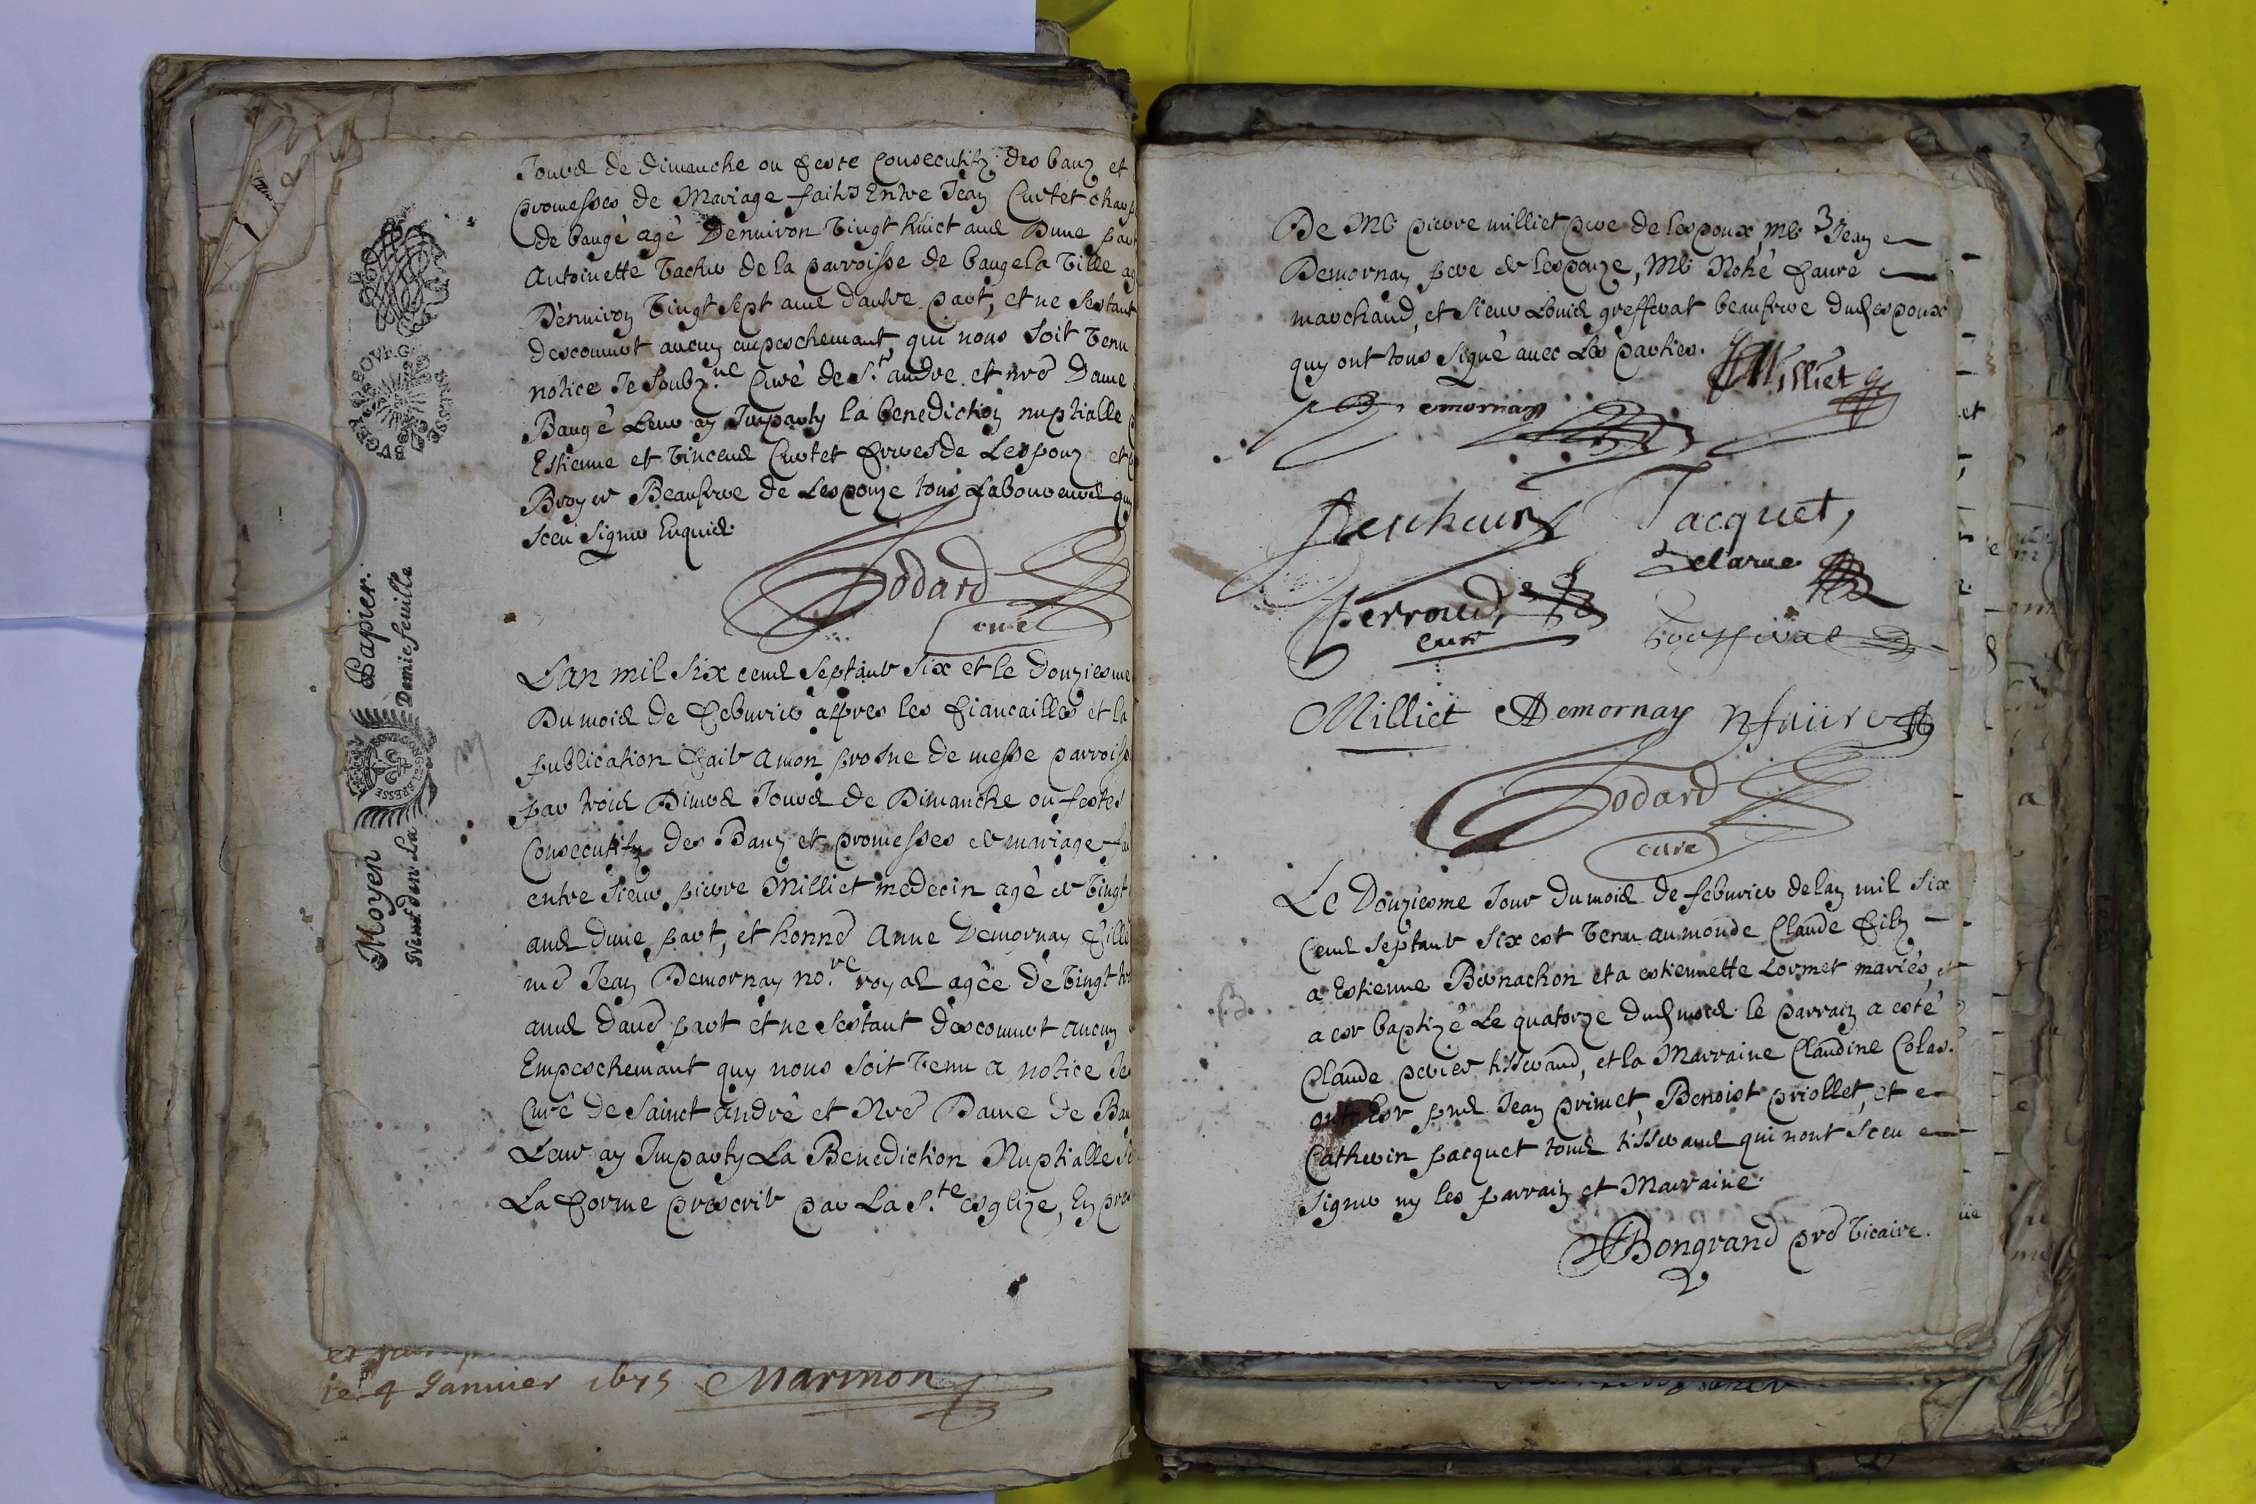 Jours de dimanche ou feste Consecutifz des banz et
promesses de Mariage faitts Entre Jean Curtet
de baugé agé Denuiron Vingt huict ans Dune part
Antoinette de la parroisse de baugé la Ville
Denuiron Vingt sept ans dautre part, et ne sestant
descouuert aucun empeschemant qui nous soit Venu
notice Je soubz.né Curé de S.t andre et nre Dame
Baugé Leur ay Imparty la benediction nuptialle
Estienne et Vincend Curtet freres de Lespoux et
Broyer Beaufrere de Lespouze tous Laboureurs
sceu signer Enquis.
Godard
curé
Lan mil six cens septante six et le Douziesme
Du mois de feburier appres les fiancailles et la
publication faite a mon prosne de messe
par trois Diuers Jours de Dimanche ou festes
Consecutifz des Banz et promesses de mariage
entre sieur pierre Milliet medecin agé de Vingt
ans dune part, et honne Anne Demornay fille
me Jean Demornay no.re royal agée de Vingt
ans daue part et ne sestant descouuert aucun
Empeschemant quy nous soit Venu a notice Je
Curé de Sainct André et Nre Dame de
Leur ay Imparty La Benediction Nuptialle
La forme prescrite par La S.te esglize, En
le 4 Januier 1675 Marinon
Moyen Papier.
Neuf den. La Demie feuille
BOVRG BRESSE
De Me pierre milliet pere de lespoux, Me Jean
Demornay pere de lespouze, Me Nohé faure
marchand, et sieur Louis grefferat beaufrere dud espoux
quy ont tous signé auec Les parties.
Milliet
Demornay
Jacquet,
Delarue
Perroud
curé
Milliet Demornay nfaure
Godard
curé
Le Douziesme Jour du mois de feburier de lan mil six
Cens septante six est Venu au monde Claude filz
a Estienne Bernachon et a estiennette Lormet mariés, et
a este baptizé Le quatorze dud mois. le parrain a esté
Claude perier tisserand, et la Marraine Claudine Colas.
ont Este pns Jean primet, Benoist priollet, et
Catherin pacquet tous tisserans qui nont sceu
signer ny les parrain et Marraine.
Bongrand pre Vicaire.